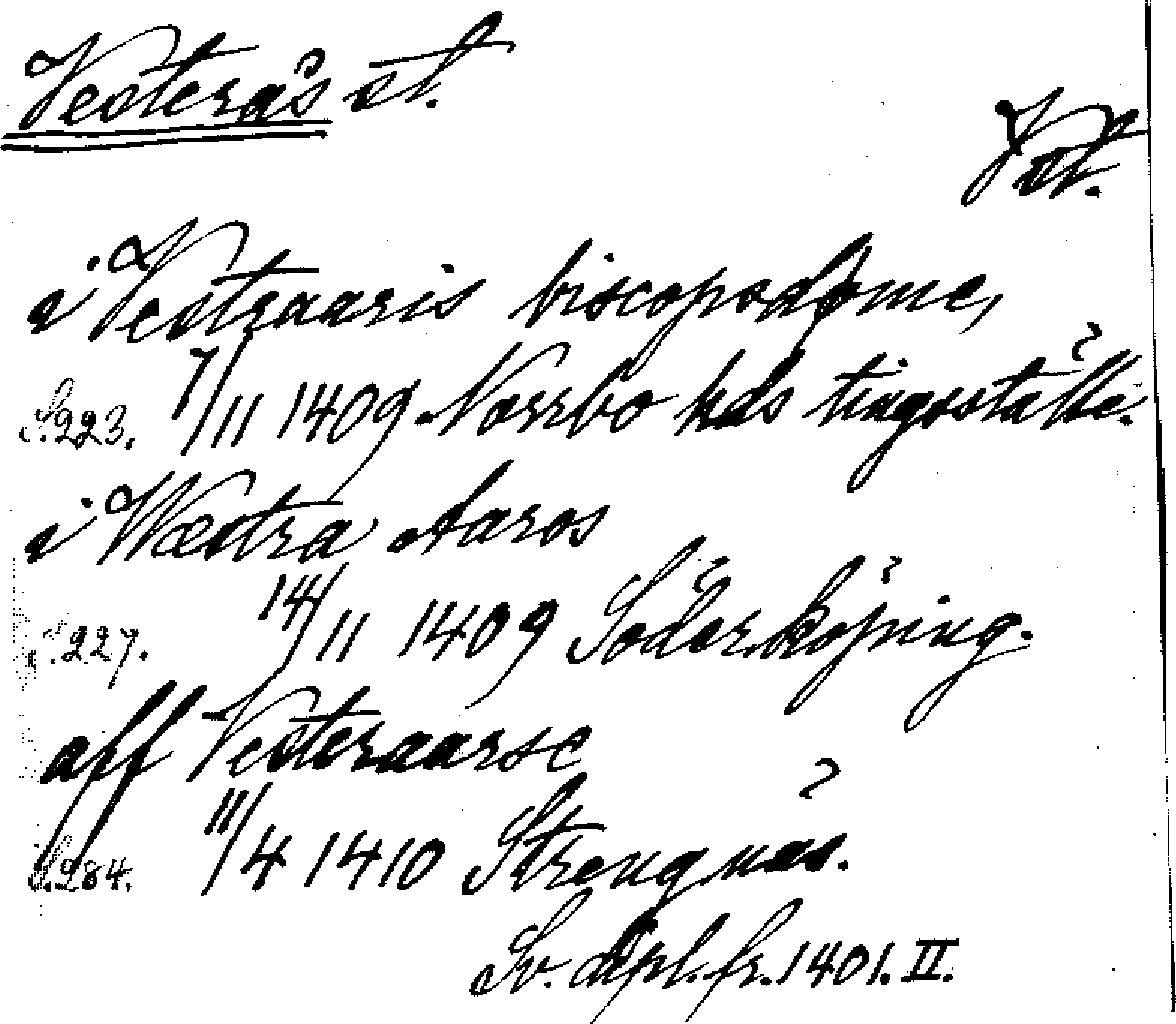 Vesterås st.
Vst.
i Vestraaris biscopsdøme,
S. 223. 7/11 1409 Norrbo hds tingställe.
i Wæstra Aaros
S. 227. 14/11 1409 Söderköping.
aff Vesteraarse
S. 284. 11/4 1410 Strengnäs.
Sv. dipl. fr. 1401. II.